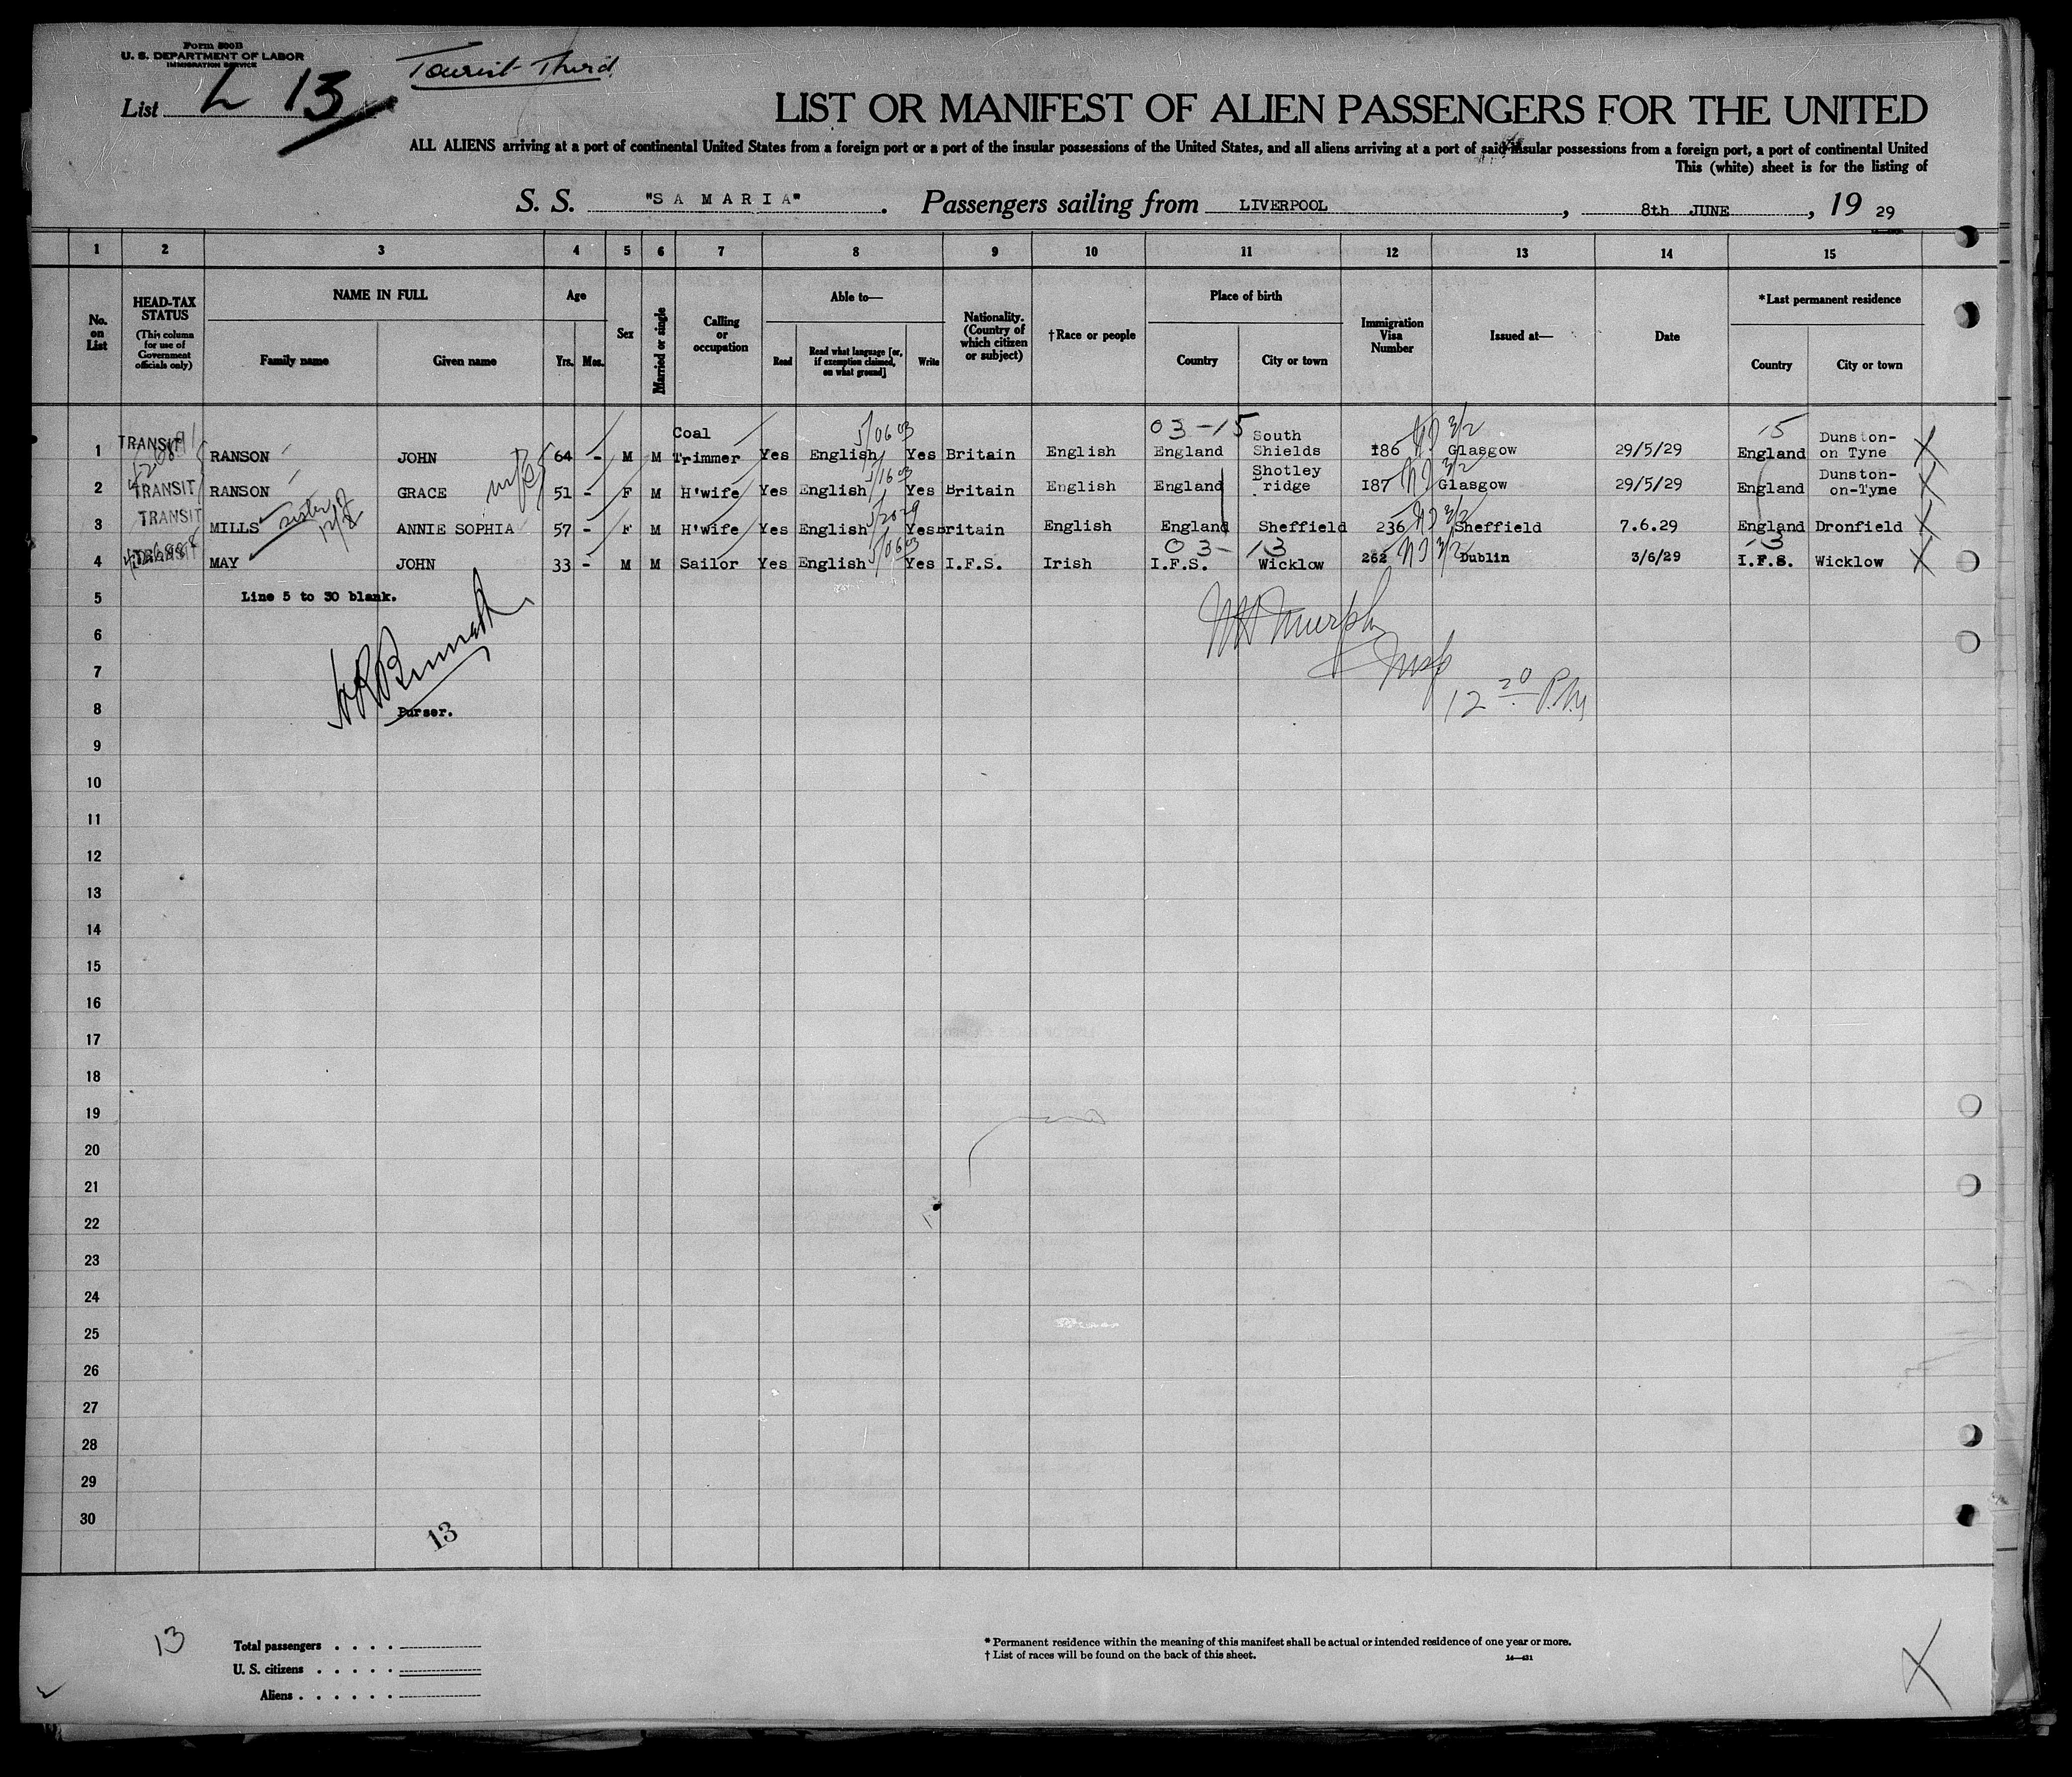 Form 500B
U. S. DEPARTMENT OF LABOR
IMMIGRATION SERVICE
List L 13
Tourist Third
LIST OR MANIFEST OF ALIEN PASSENGERS FOR THE UNITED
ALL ALIENS arriving at a port of continental United States from a foreign port or a port of the insular possessions of the United States, and all aliens arriving at a port of said insular possessions from a foreign port, a port of continental United
This (white) sheet is for the listing of
S. S. "SAMARIA". Passengers sailing from LIVERPOOL, 8th JUNE, 19 29
1 2 3 4 5 6 7 8 9 10 11 12 13 14 15
No. on List
HEAD-TAX STATUS (This column for use of Government officials only)
NAME IN FULL
Family name Given name
Age
Yrs. Mos.
Sex
Married or single
Calling or occupation
Able to—
Read Read what language [or, if exemption claimed, on what ground] Write
Nationality. (Country of which citizen or subject)
†Race or people
Place of birth
Country City or town
Immigration Visa Number
Issued at—
Date
*Last permanent residence
Country City or town
03-15 15
1 TRANSIT RANSON JOHN 64 - M M Coal Trimmer Yes English Yes Britain English England South Shields 186 Glasgow 29/5/29 England Dunston-on Tyne X
2 TRANSIT RANSON GRACE wife 51 - F M H'wife Yes English Yes Britain English England Shotley ridge 187 Glasgow 29/5/29 England Dunston-on-Tyne X
3 TRANSIT MILLS sister ANNIE SOPHIA 57 - F M H'wife Yes English Yes Britain English England Sheffield 236 Sheffield 7.6.29 England Dronfield X
03-13 13
4 TRANSIT MAY JOHN 33 - M M Sailor Yes English Yes I.F.S. Irish I.F.S. Wicklow 262 Dublin 3/6/29 I.F.S. Wicklow X
5 Line 5 to 30 blank.
6 Murphy
7 Insp
12 20 P.M.
8 Purser.
9
10
11
12
13
14
15
16
17
18
19
20
21
22
23
24
25
26
27
28
29
30
13
13
Total passengers . . . .
U. S. citizens . . . . .
Aliens . . . . . .
* Permanent residence within the meaning of this manifest shall be actual or intended residence of one year or more.
† List of races will be found on the back of this sheet.
X